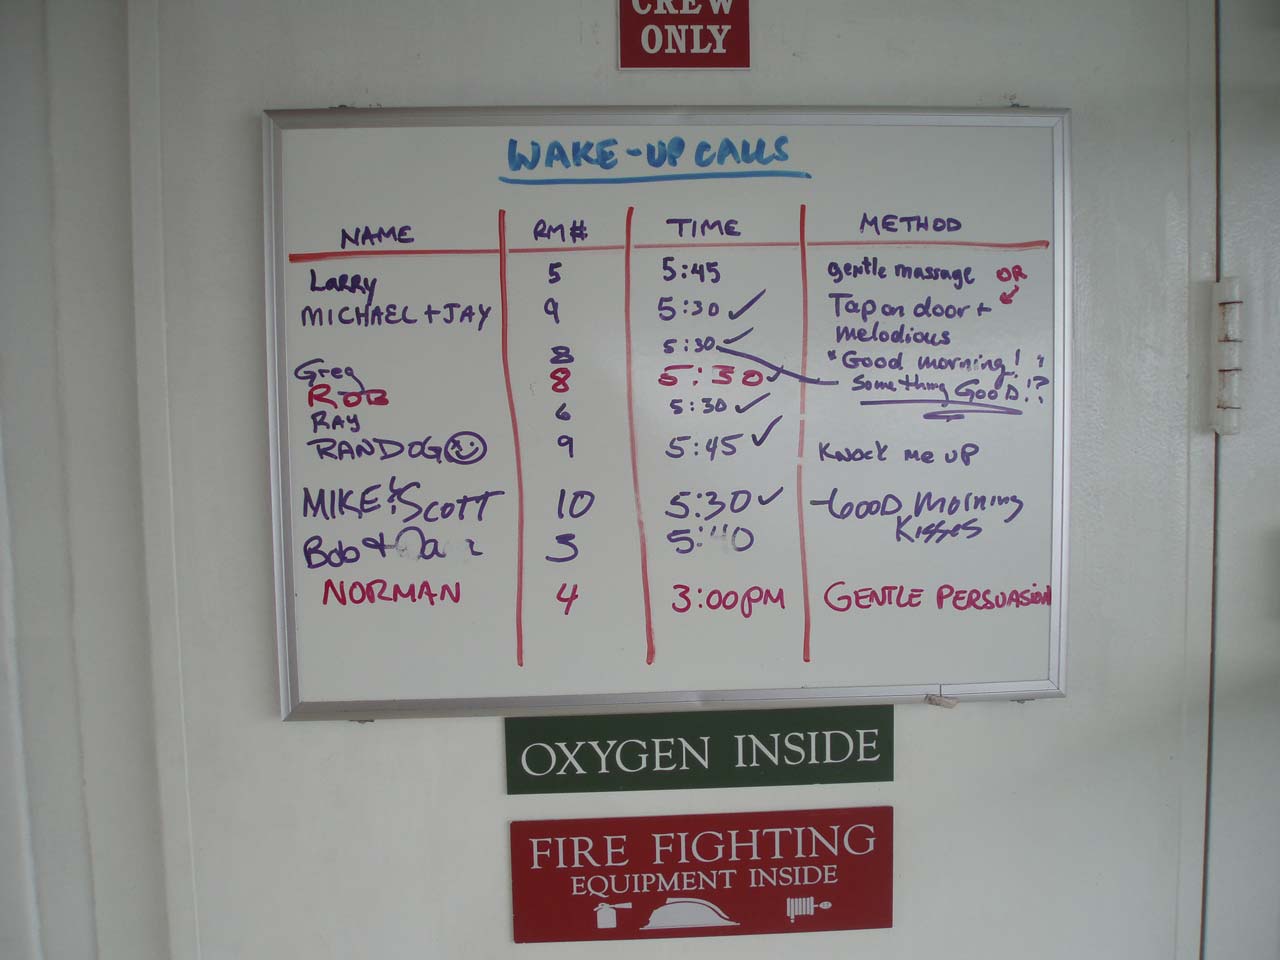 CREW
ONLY
WAKE-UP CALLS
NAME RM# TIME METHOD
Larry 5 5:45 gentle massage OR
MICHAEL + JAY 9 5:30 ✓ Tap on door +
melodious
Greg 8 5:30 ✓ "Good morning!"
ROB 8 5:30 ✓ Something GOOD!?
RAY 6 5:30 ✓
RANDOG 9 5:45 ✓ Knock me up
MIKE & SCOTT 10 5:30 ✓ - GOOD Morning
Kisses
Bob + 3 5:40
NORMAN 4 3:00PM GENTLE PERSUASION
OXYGEN INSIDE
FIRE FIGHTING
EQUIPMENT INSIDE